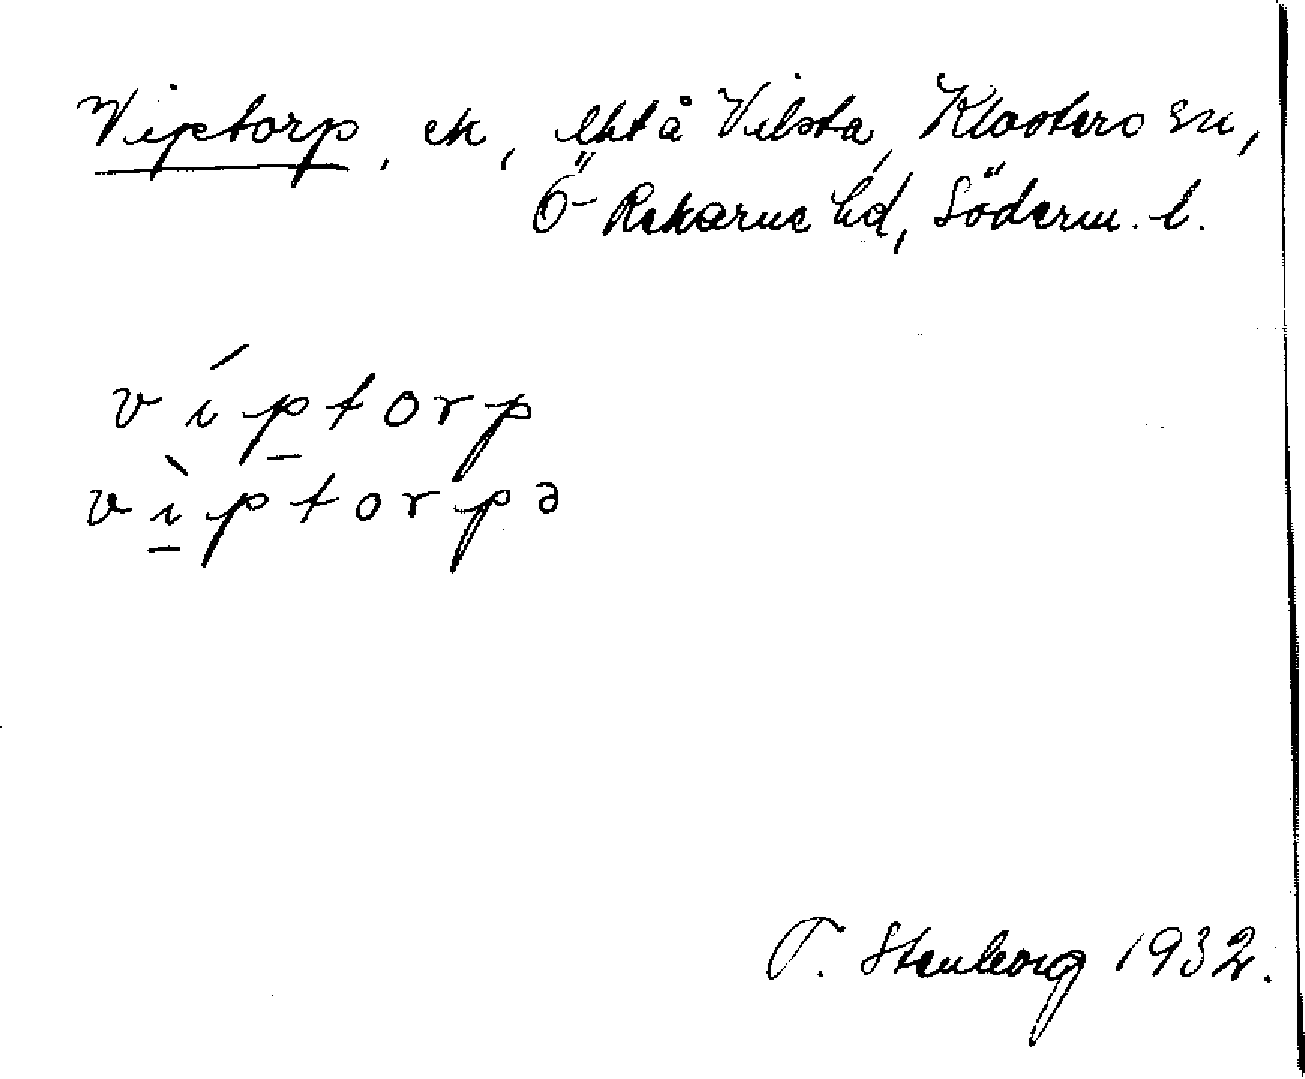 Viptorp, ek, lht å Vilsta, Klosters sn,
Ö- Rekarne hd, Söderm. l.
víptorp
vìptorpə
T. Stenborg 1932.